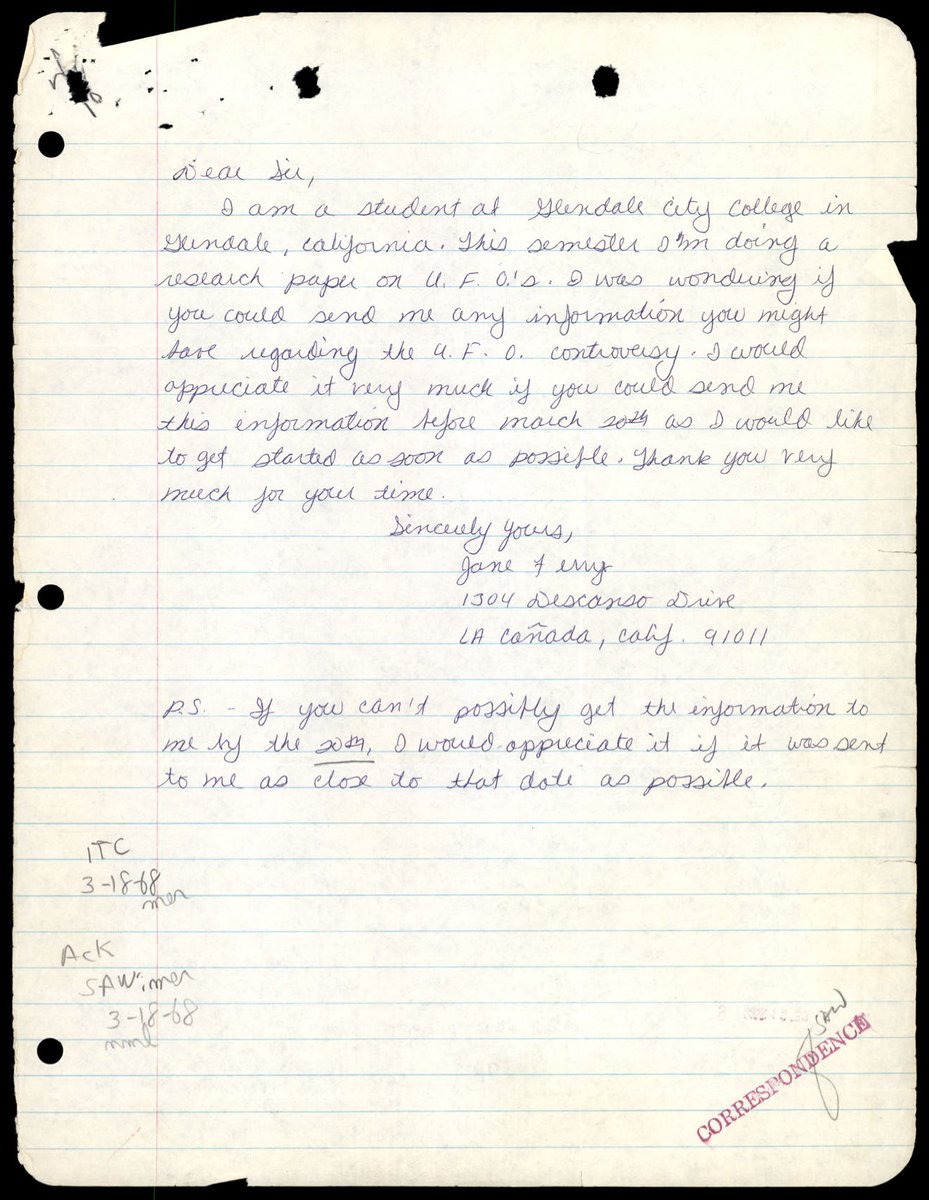 Dear Sir,
I am a student at Glendale City College in
Glendale, California. This semester I'm doing a
research paper on U. F. O.'s. I was wondering if
you could send me any information you might
have regarding the U. F. O. controversy. I would
appreciate it very much if you could send me
this information before march 20th as I would like
to get started as soon as possible. Thank you very
much for your time.
Sincerely yours,
Jane Ferry
1304 Descanso Drive
LA Cañada, Calif. 91011
P.S. - If you can't possibly get the information to
me by the 20th, I would appreciate it if it was sent
to me as close to that date as possible.
ITC
3-18-68
mer
Ack
SAW:mer
3-18-68
nml
SAW
CORRESPONDENCE